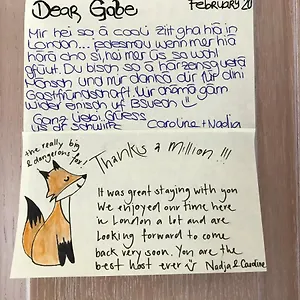 Dear Gabe
February 20
Mir hei so ä cooli Ziit gha hiä in
London... jedesmau wenn mer hiä
härä cho si, hei mer üs so wou
gfüut. Du bisch so ä härzensguetä
Mönsch und mer dankä dir für dini
Gastfründschaft. Wir chömä gärn
wider einisch uf Bsuech!!
Ganz liebi Grüess
us dr Schwiiz
Caroline + Nadia
the really big
& dangerous fox!
Thanks a million!!!
It was great staying with you
We enjoyed our time here
in London a lot and are
looking forward to come
back very soon. You are the
best host ever
Nadja & Caroline